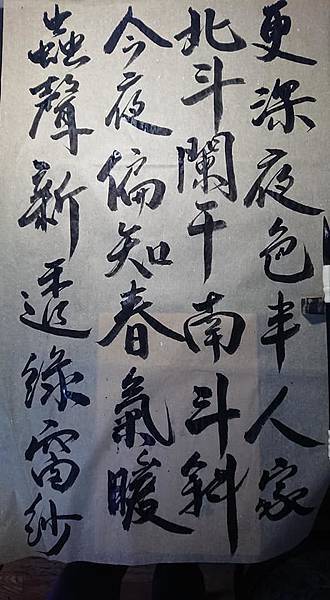 更深夜色半人家
北斗闌干南斗斜
今夜偏知春氣暖
蟲聲新透綠窗紗